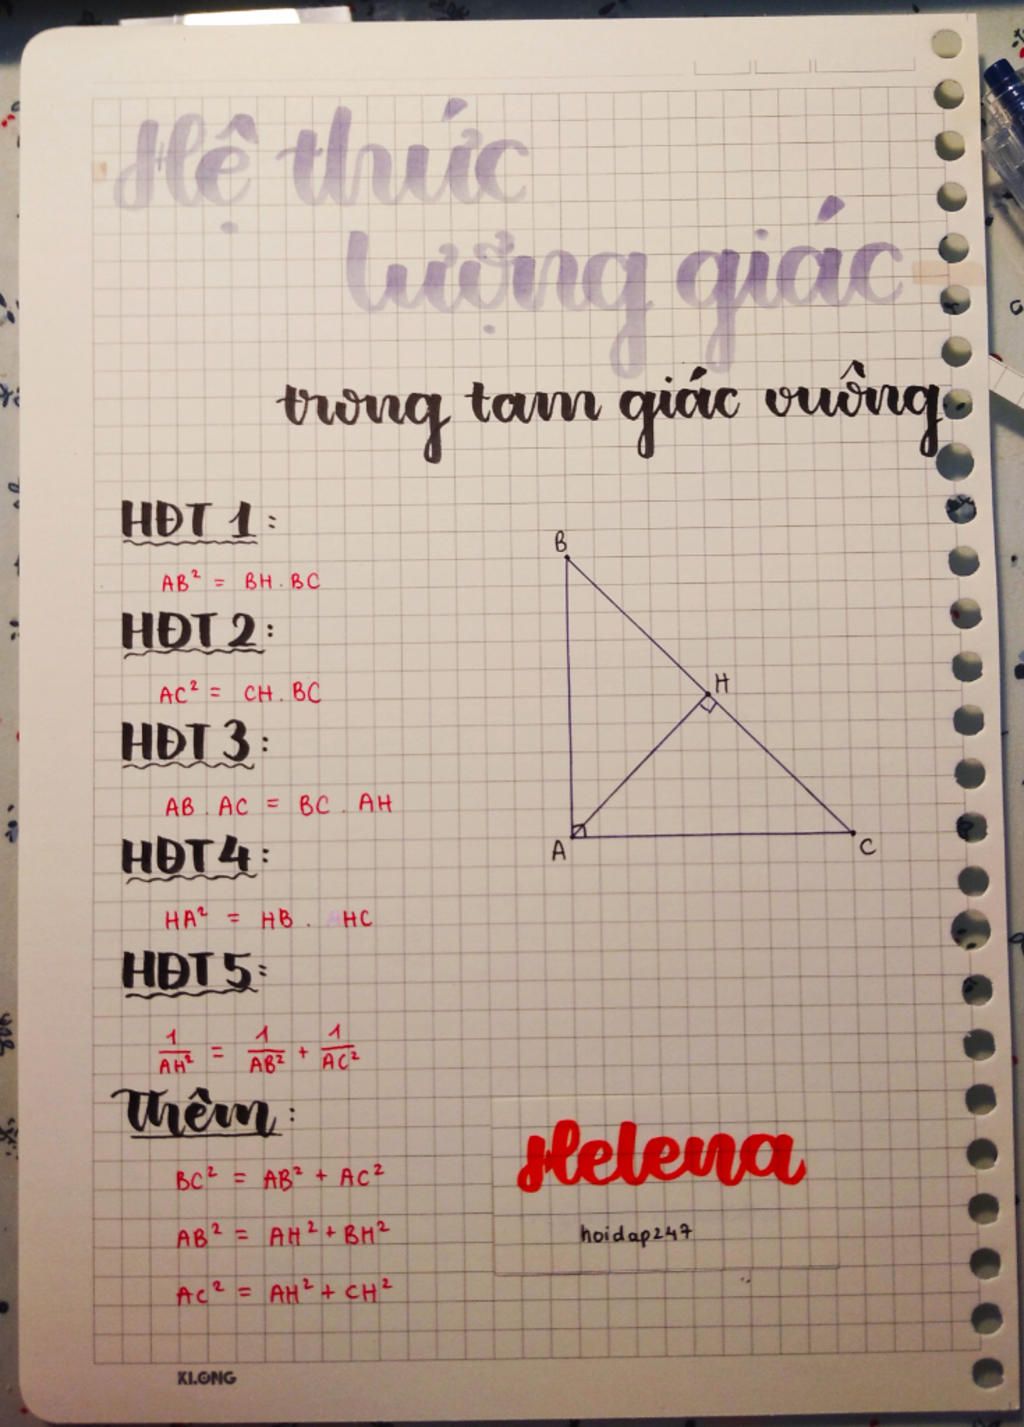 Hệ thức
lượng giác
trong tam giác vuông
HĐT 1:
AB² = BH . BC
HĐT 2:
AC² = CH . BC
HĐT 3:
AB . AC = BC . AH
HĐT 4:
HA² = HB . HC
HĐT 5:
1/AH² = 1/AB² + 1/AC²
Thêm:
BC² = AB² + AC²
AB² = AH² + BH²
AC² = AH² + CH²
B
H
A
C
Helena
hoidap247
KLONG